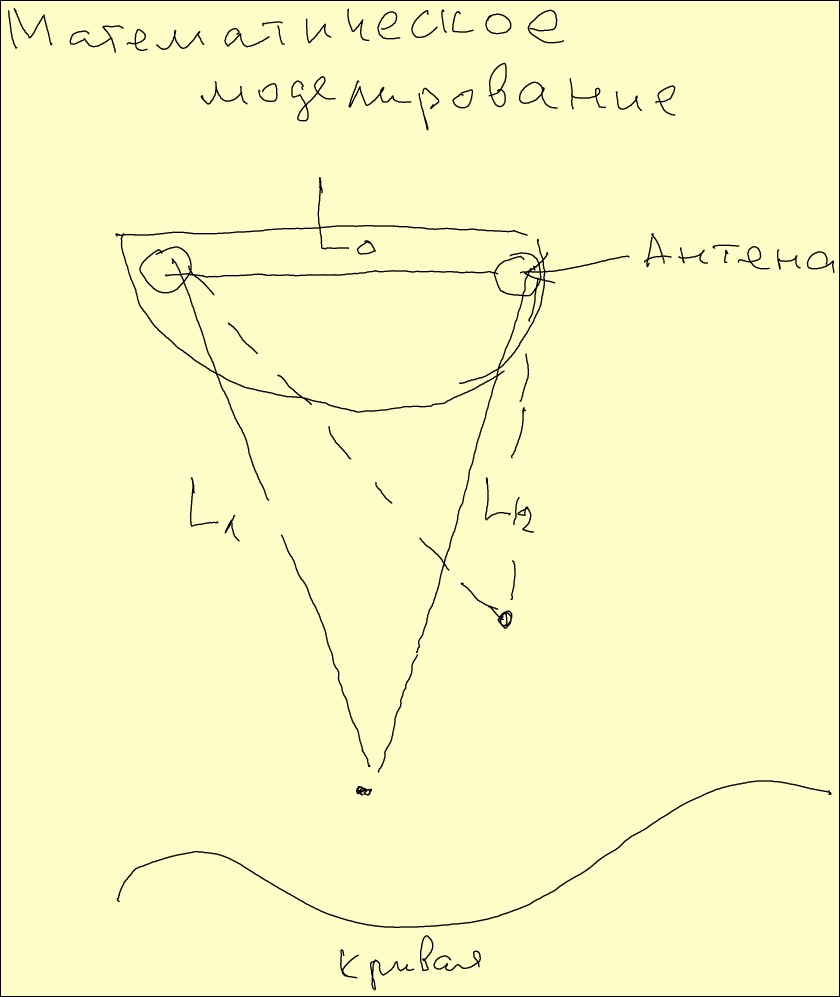 Математическое
моделирование
L0
Антена
L1
L2
кривая